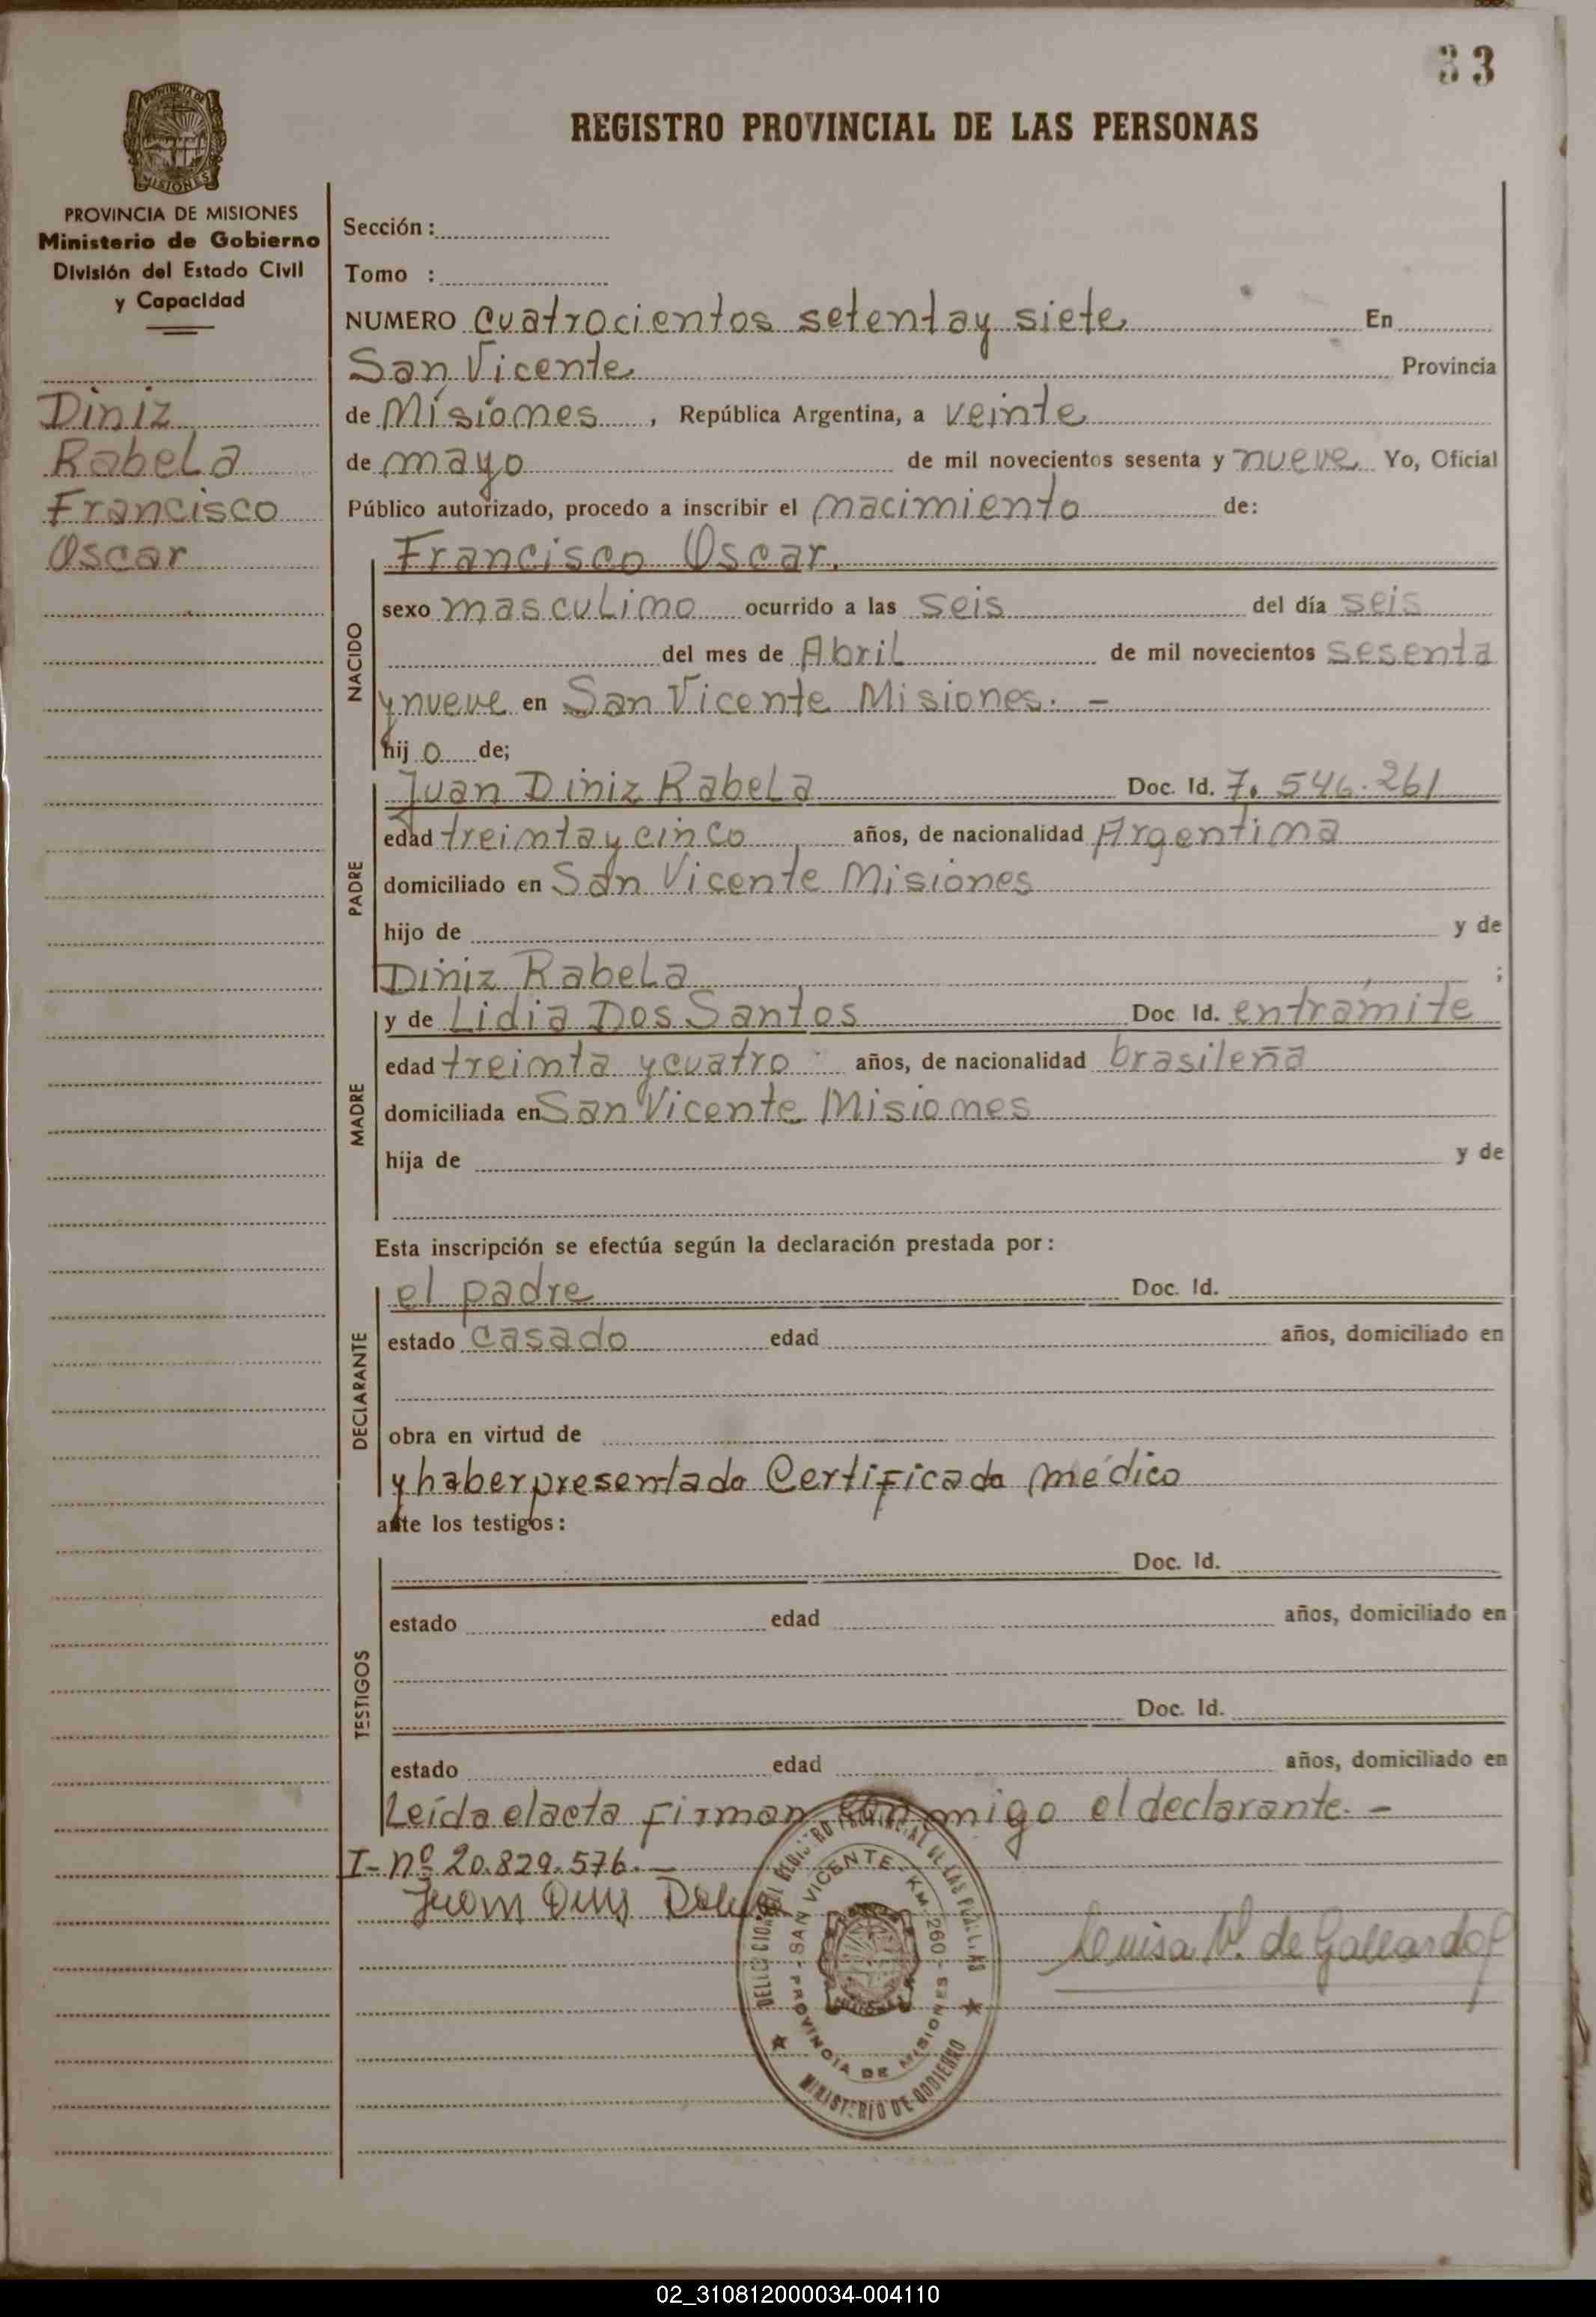 33
REGISTRO PROVINCIAL DE LAS PERSONAS
PROVINCIA DE MISIONES
PROVINCIA DE MISIONES
Ministerio de Gobierno
División del Estado Civil
y Capacidad
Diniz
Rabela
Francisco
Oscar
Sección :
Tomo :
NUMERO cuatrocientos setentay siete En
San Vicente Provincia
de Misiones , República Argentina, a veinte
de mayo de mil novecientos sesenta y nueve Yo, Oficial
Público autorizado, procedo a inscribir el nacimiento de:
NACIDO
Francisco Oscar.
sexo masculino ocurrido a las seis del día seis
del mes de Abril de mil novecientos sesenta
y nueve en San Vicente Misiones. -
hij o de;
PADRE
Juan Diniz Rabela Doc. Id. 7. 546.261
edad treinta y cinco años, de nacionalidad Argentina
domiciliado en San Vicente Misiones
hijo de y de
Diniz Rabela ;
MADRE
y de Lidia Dos Santos Doc. Id. entrámite
edad treinta y cuatro años, de nacionalidad brasileña
domiciliada en San Vicente Misiones
hija de y de
Esta inscripción se efectúa según la declaración prestada por :
DECLARANTE
el padre Doc. Id.
estado casado edad años, domiciliado en
obra en virtud de
y haber presentado Certificado médico
ante los testigos :
TESTIGOS
Doc. Id.
estado edad años, domiciliado en
Doc. Id.
estado edad años, domiciliado en
Leída el acta firman conmigo el declarante. -
I- nº 20.829.576. -
Luisa V. de Gallardo
SAN VICENTE - KM. 260 -
PROVINCIA DE MISIONES
MINISTERIO DE GOBIERNO
02_310812000034-004110